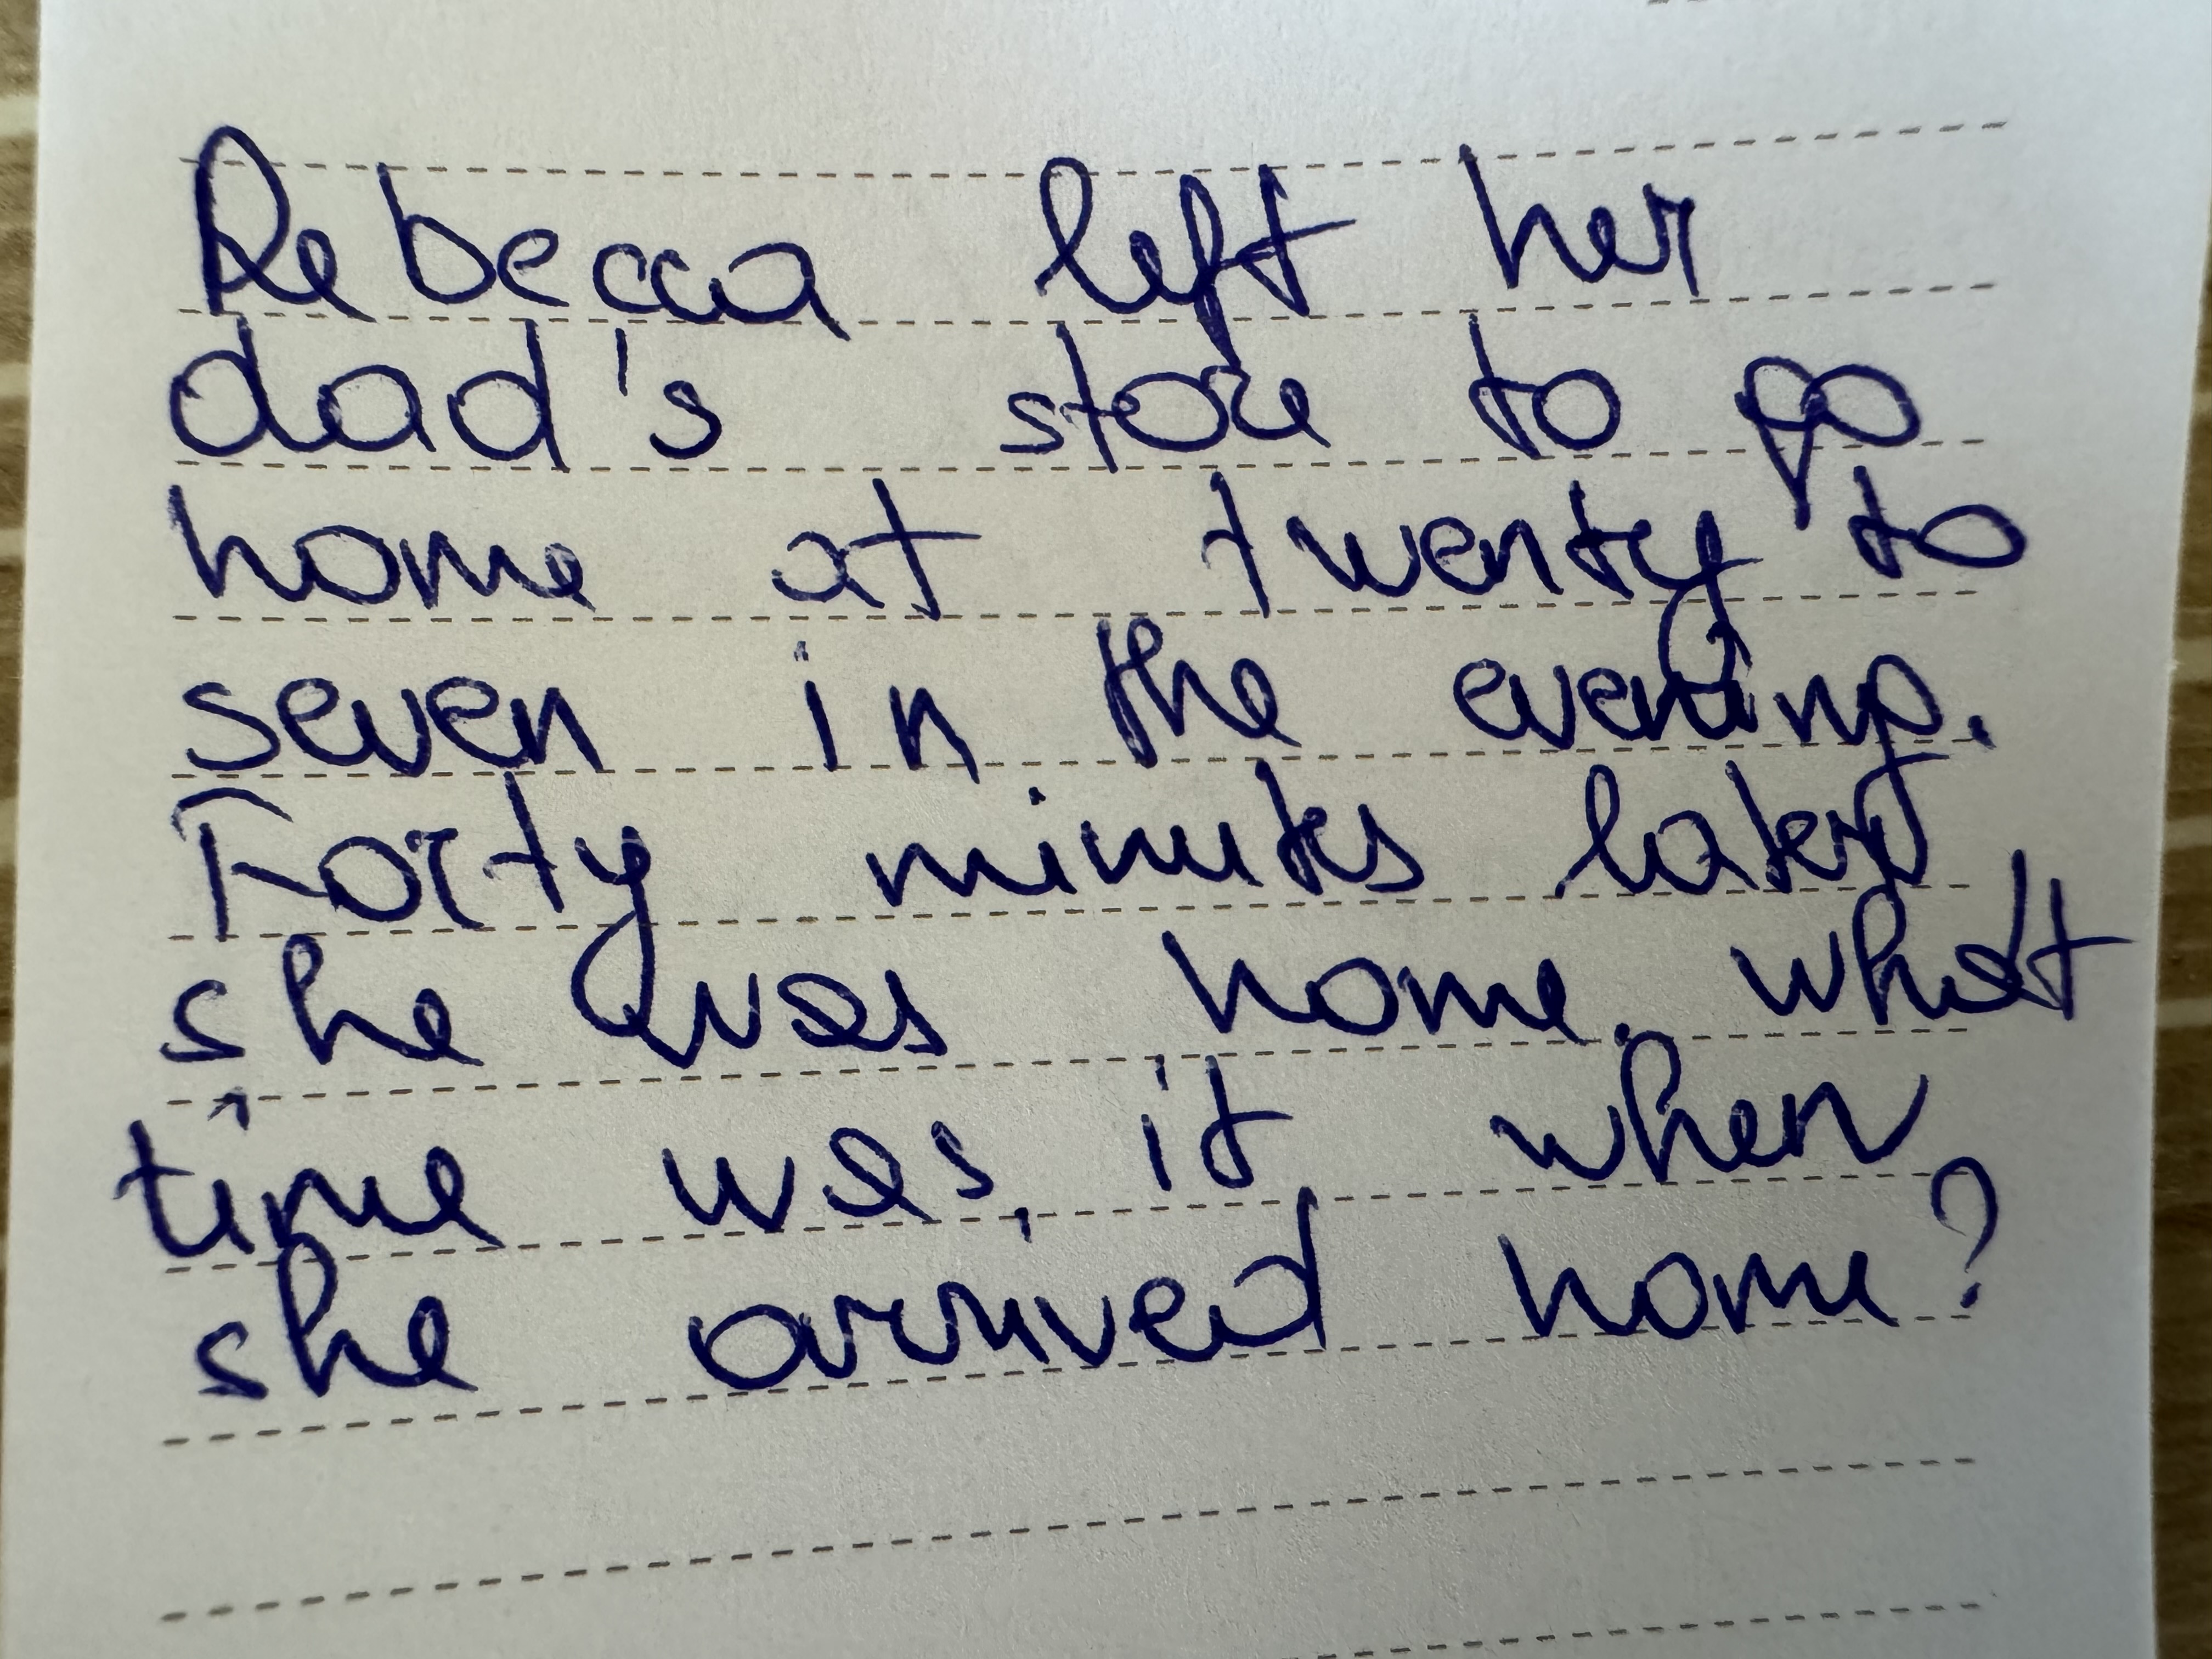 Rebecca left her
dad's store to go
home at twenty to
seven in the evening.
Forty minutes later
she was home. what
time was, it when
she arrived home?